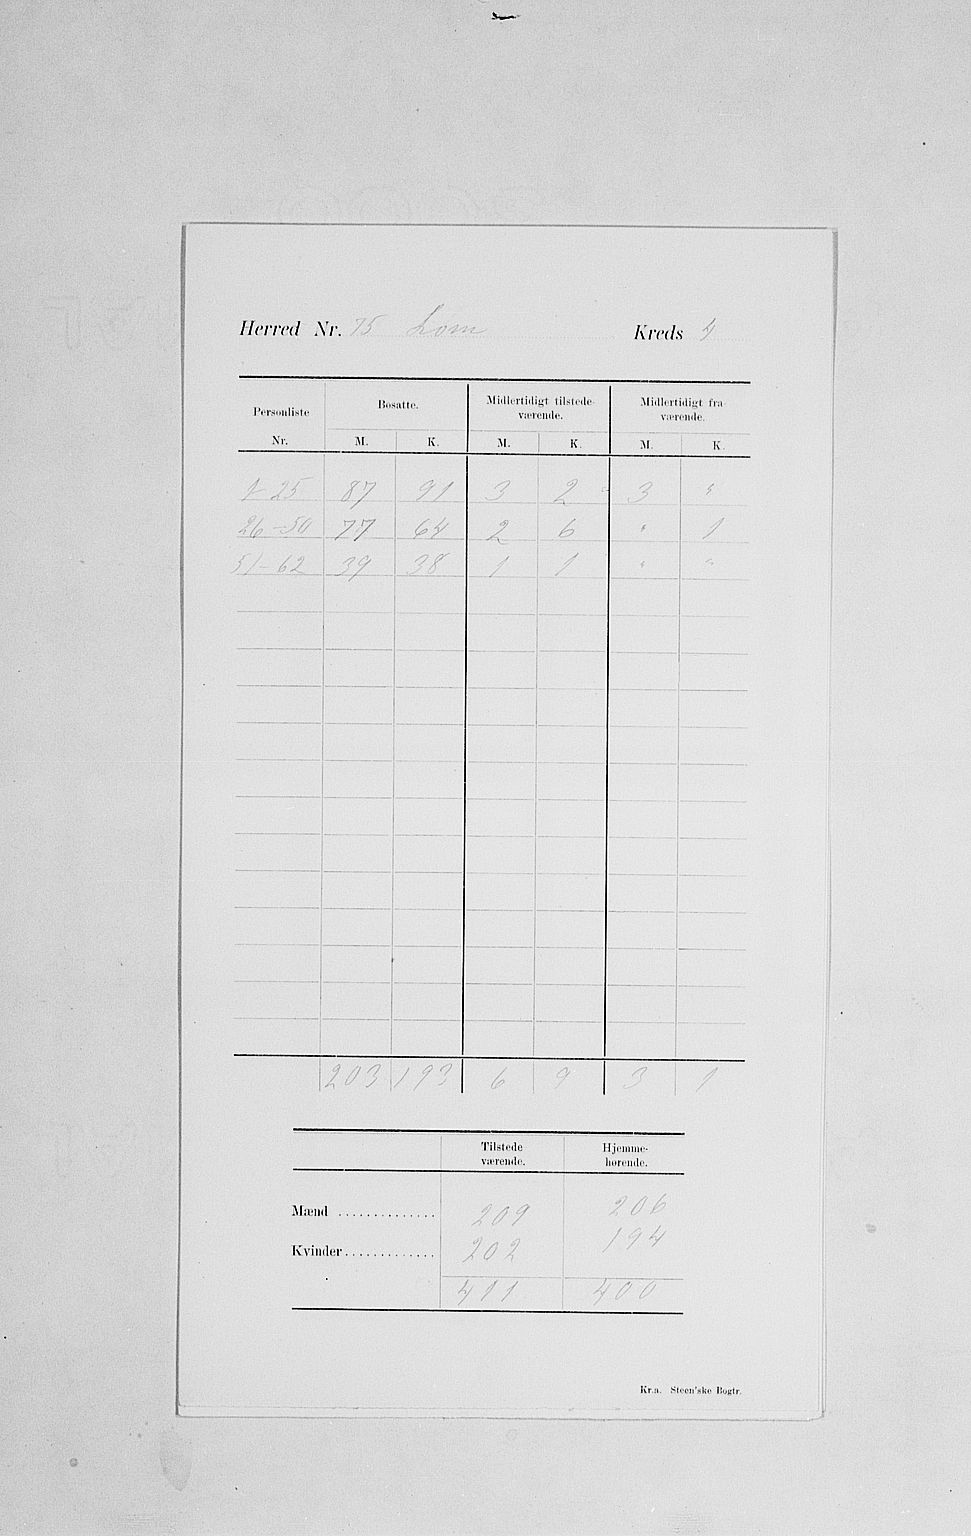 Herred Nr. 75 Lom Kreds 4
Personliste Nr. Bosatte. Midlertidigt tilstede- værende. Midlertidigt fra- værende.
M. K. M. K. M. K.
1-25 87 91 3 2 3 "
26-50 77 64 2 6 " 1
51-62 39 38 1 1 " "
203 193 6 9 3 1
Tilstede værende. Hjemme- hørende.
Mænd .............. 209 206
Kvinder ............. 202 194
411 400
Kr.a. Steen'ske Bogtr.